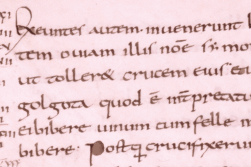 Exeuntes autem inuenerunt h
tem ouiam illis nōe sẏ mo
ut tollerꝫ crucem eius
golgota quod ē int̄pretatu
ei bibere uinum cum felle m
bibere. Postq̄ crucifixerun